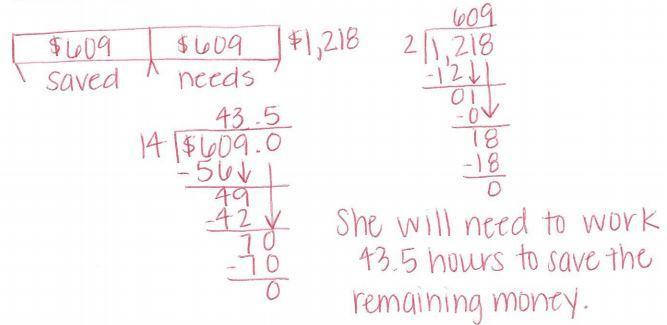 $609 $609 $1,218
saved needs
609
2 1,218
-12
01
-0
18
-18
0
43.5
14 $609.0
-56
49
-42
70
-70
0
She will need to work
43.5 hours to save the
remaining money.